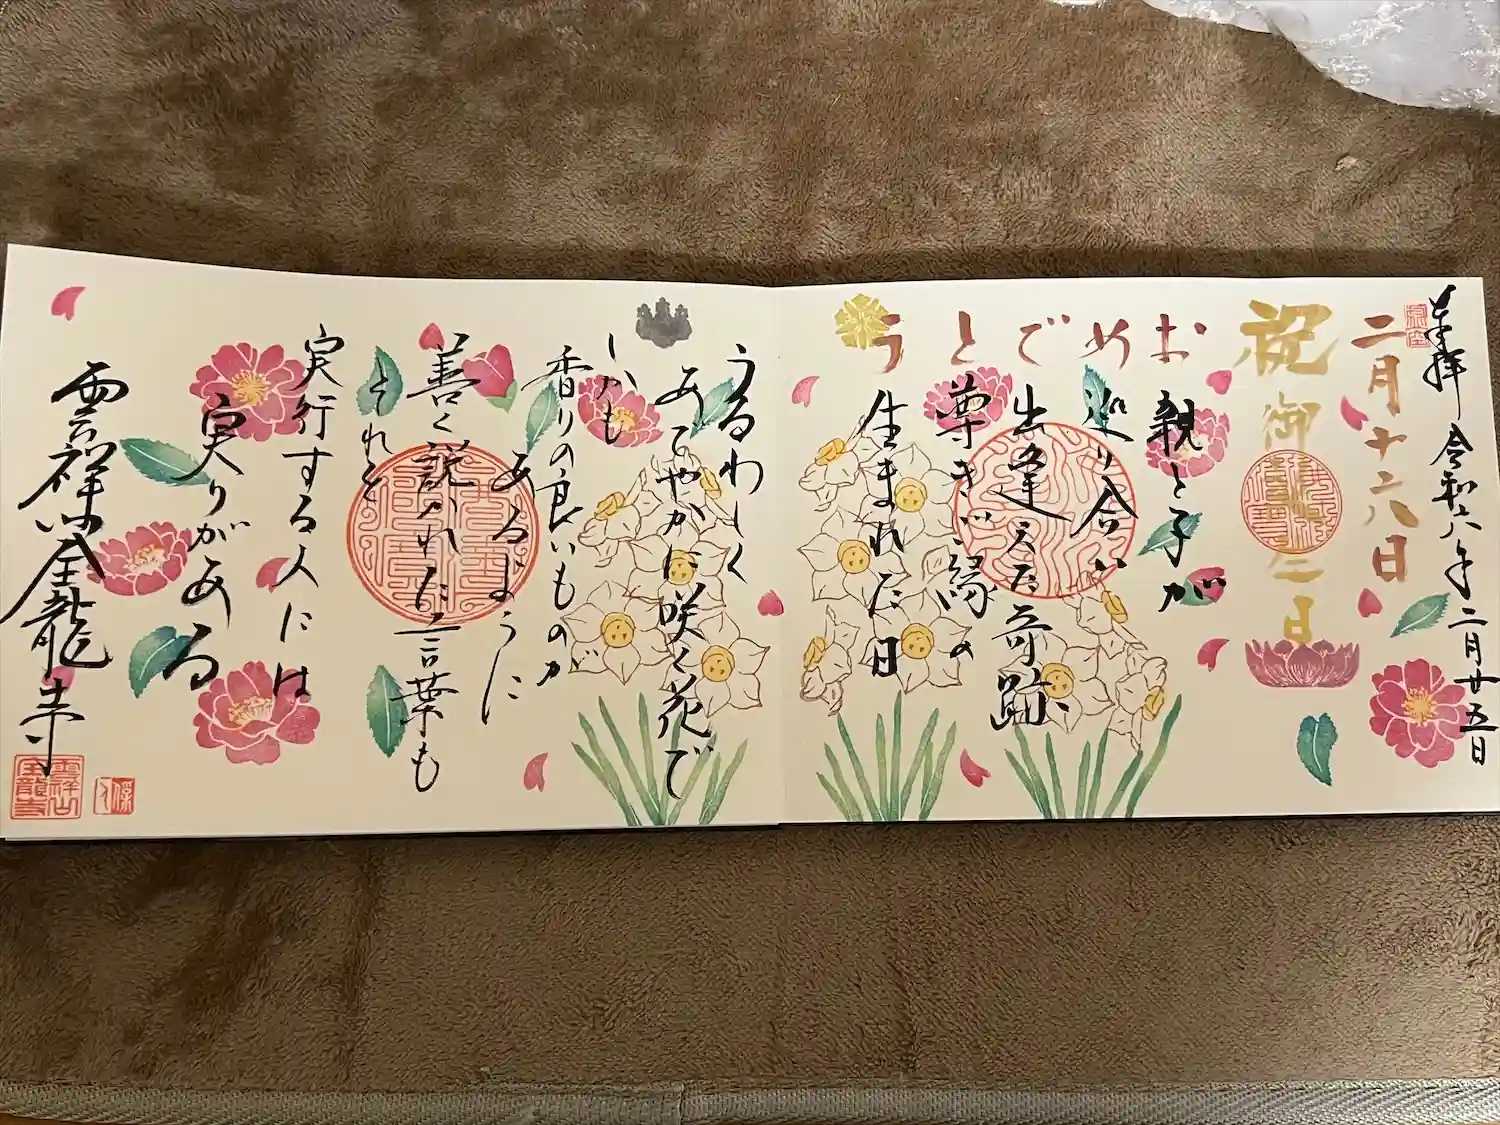 奉拝 令和六年二月廿五日
二月十六日
祝御生日
おめでとう
親と子が
巡り合い
出逢えた奇跡
尊きご縁の
生まれた日
うるわしく
あでやかに咲く花で
しかも
香りの良いものが
あるように
善く説かれた言葉も
それを
実行する人には
実りがある
雲祥山金龍寺
雲祥山
金龍寺